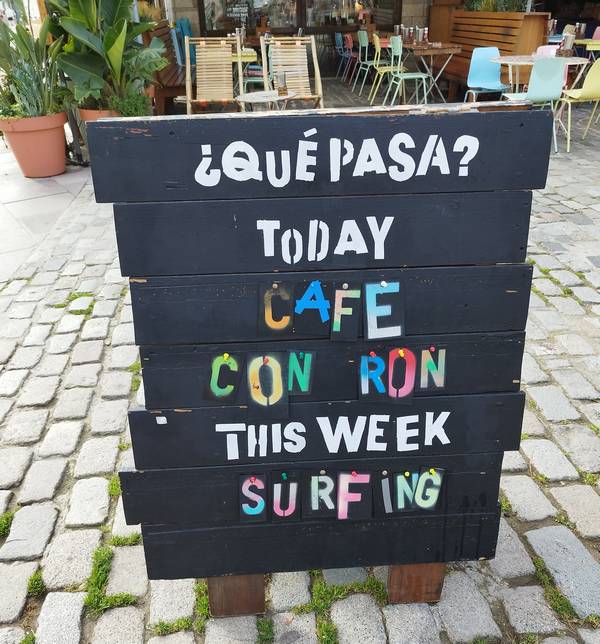 ¿QUÉ PASA?
TODAY
CAFE
CON RON
THIS WEEK
SURFING